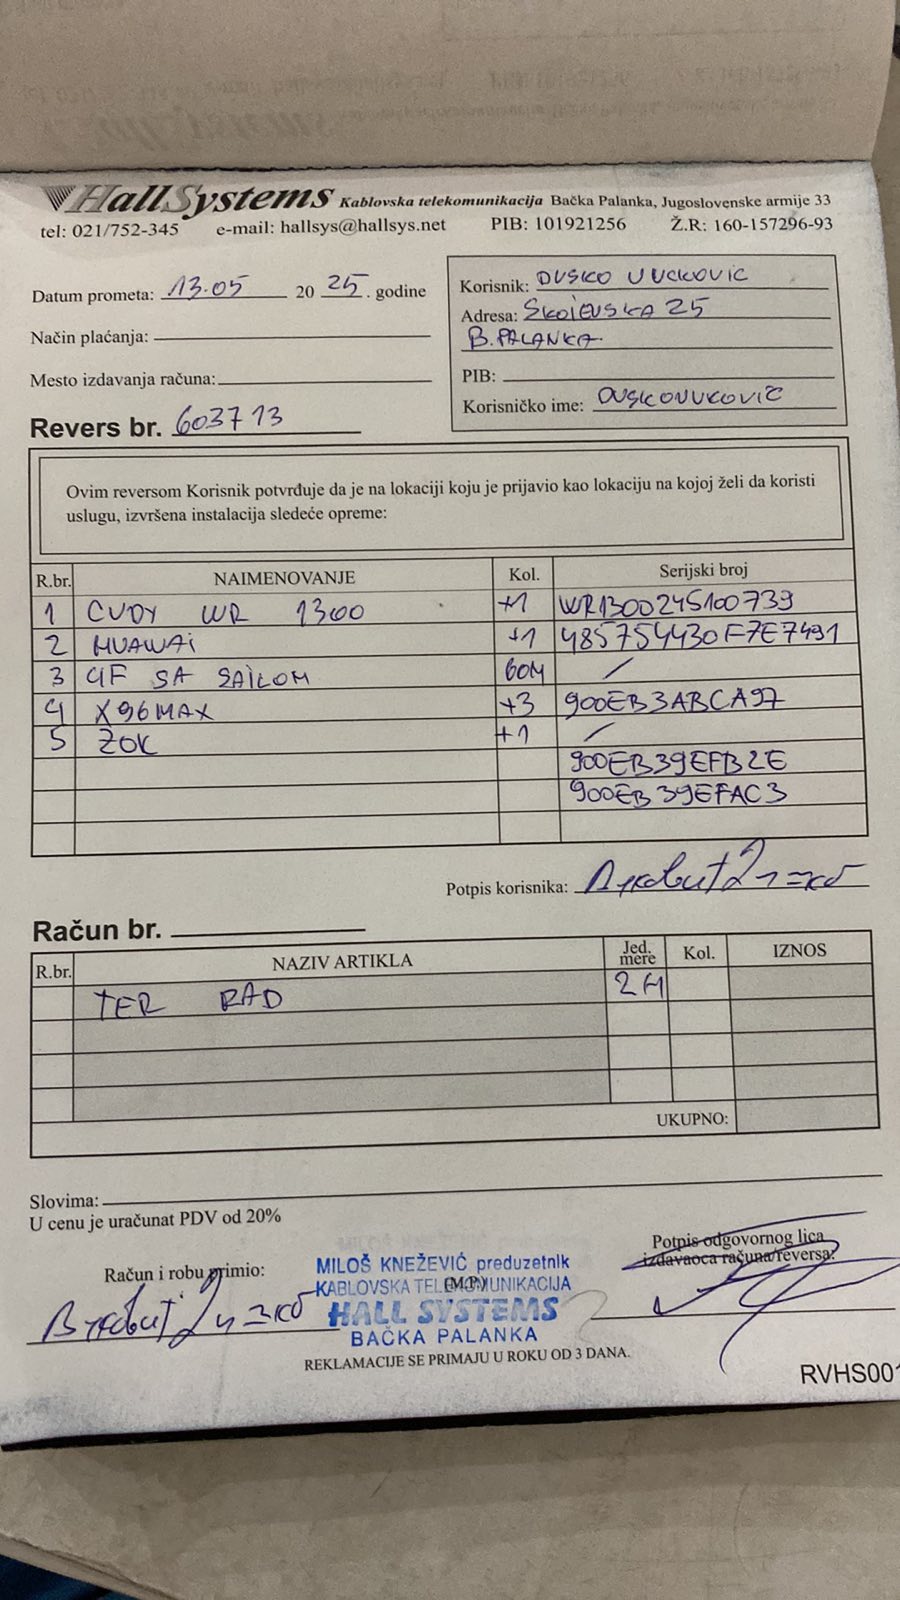 HallSystems Kablovska telekomunikacija Bačka Palanka, Jugoslovenske armije 33
tel: 021/752-345 e-mail: hallsys@hallsys.net PIB: 101921256 Ž.R: 160-157296-93
Datum prometa: 13.05 2025. godine
Način plaćanja:
Mesto izdavanja računa:
Revers br. 603713
Korisnik: DUSKO VUCKOVIC
Adresa: SKOJEVSKA 25
B. PALANKA.
PIB:
Korisničko ime: DUSKOVUKOVIC
Ovim reversom Korisnik potvrđuje da je na lokaciji koju je prijavio kao lokaciju na kojoj želi da koristi
uslugu, izvršena instalacija sledeće opreme:
R.br. NAIMENOVANJE Kol. Serijski broj
1 CUDY WR 1300 +1 WR1300245100739
2 HUAWAi +1 485754430F7E7491
3 4F SA SAILOM 60M /
4 X96MAX +3 900EB3ABCA97
5 ZOK +1 /
900EB39EFB2E
900EB39EFAC3
Potpis korisnika:
Račun br.
R.br. NAZIV ARTIKLA Jed. mere Kol. IZNOS
TER RAD 2H
UKUPNO:
Slovima:
U cenu je uračunat PDV od 20%
Račun i robu primio:
MILOŠ KNEŽEVIĆ preduzetnik
KABLOVSKA TELEKOMUNIKACIJA
(M.P.)
HALL SYSTEMS
BAČKA PALANKA
Potpis odgovornog lica
izdavaoca računa/reversa:
REKLAMACIJE SE PRIMAJU U ROKU OD 3 DANA.
RVHS001